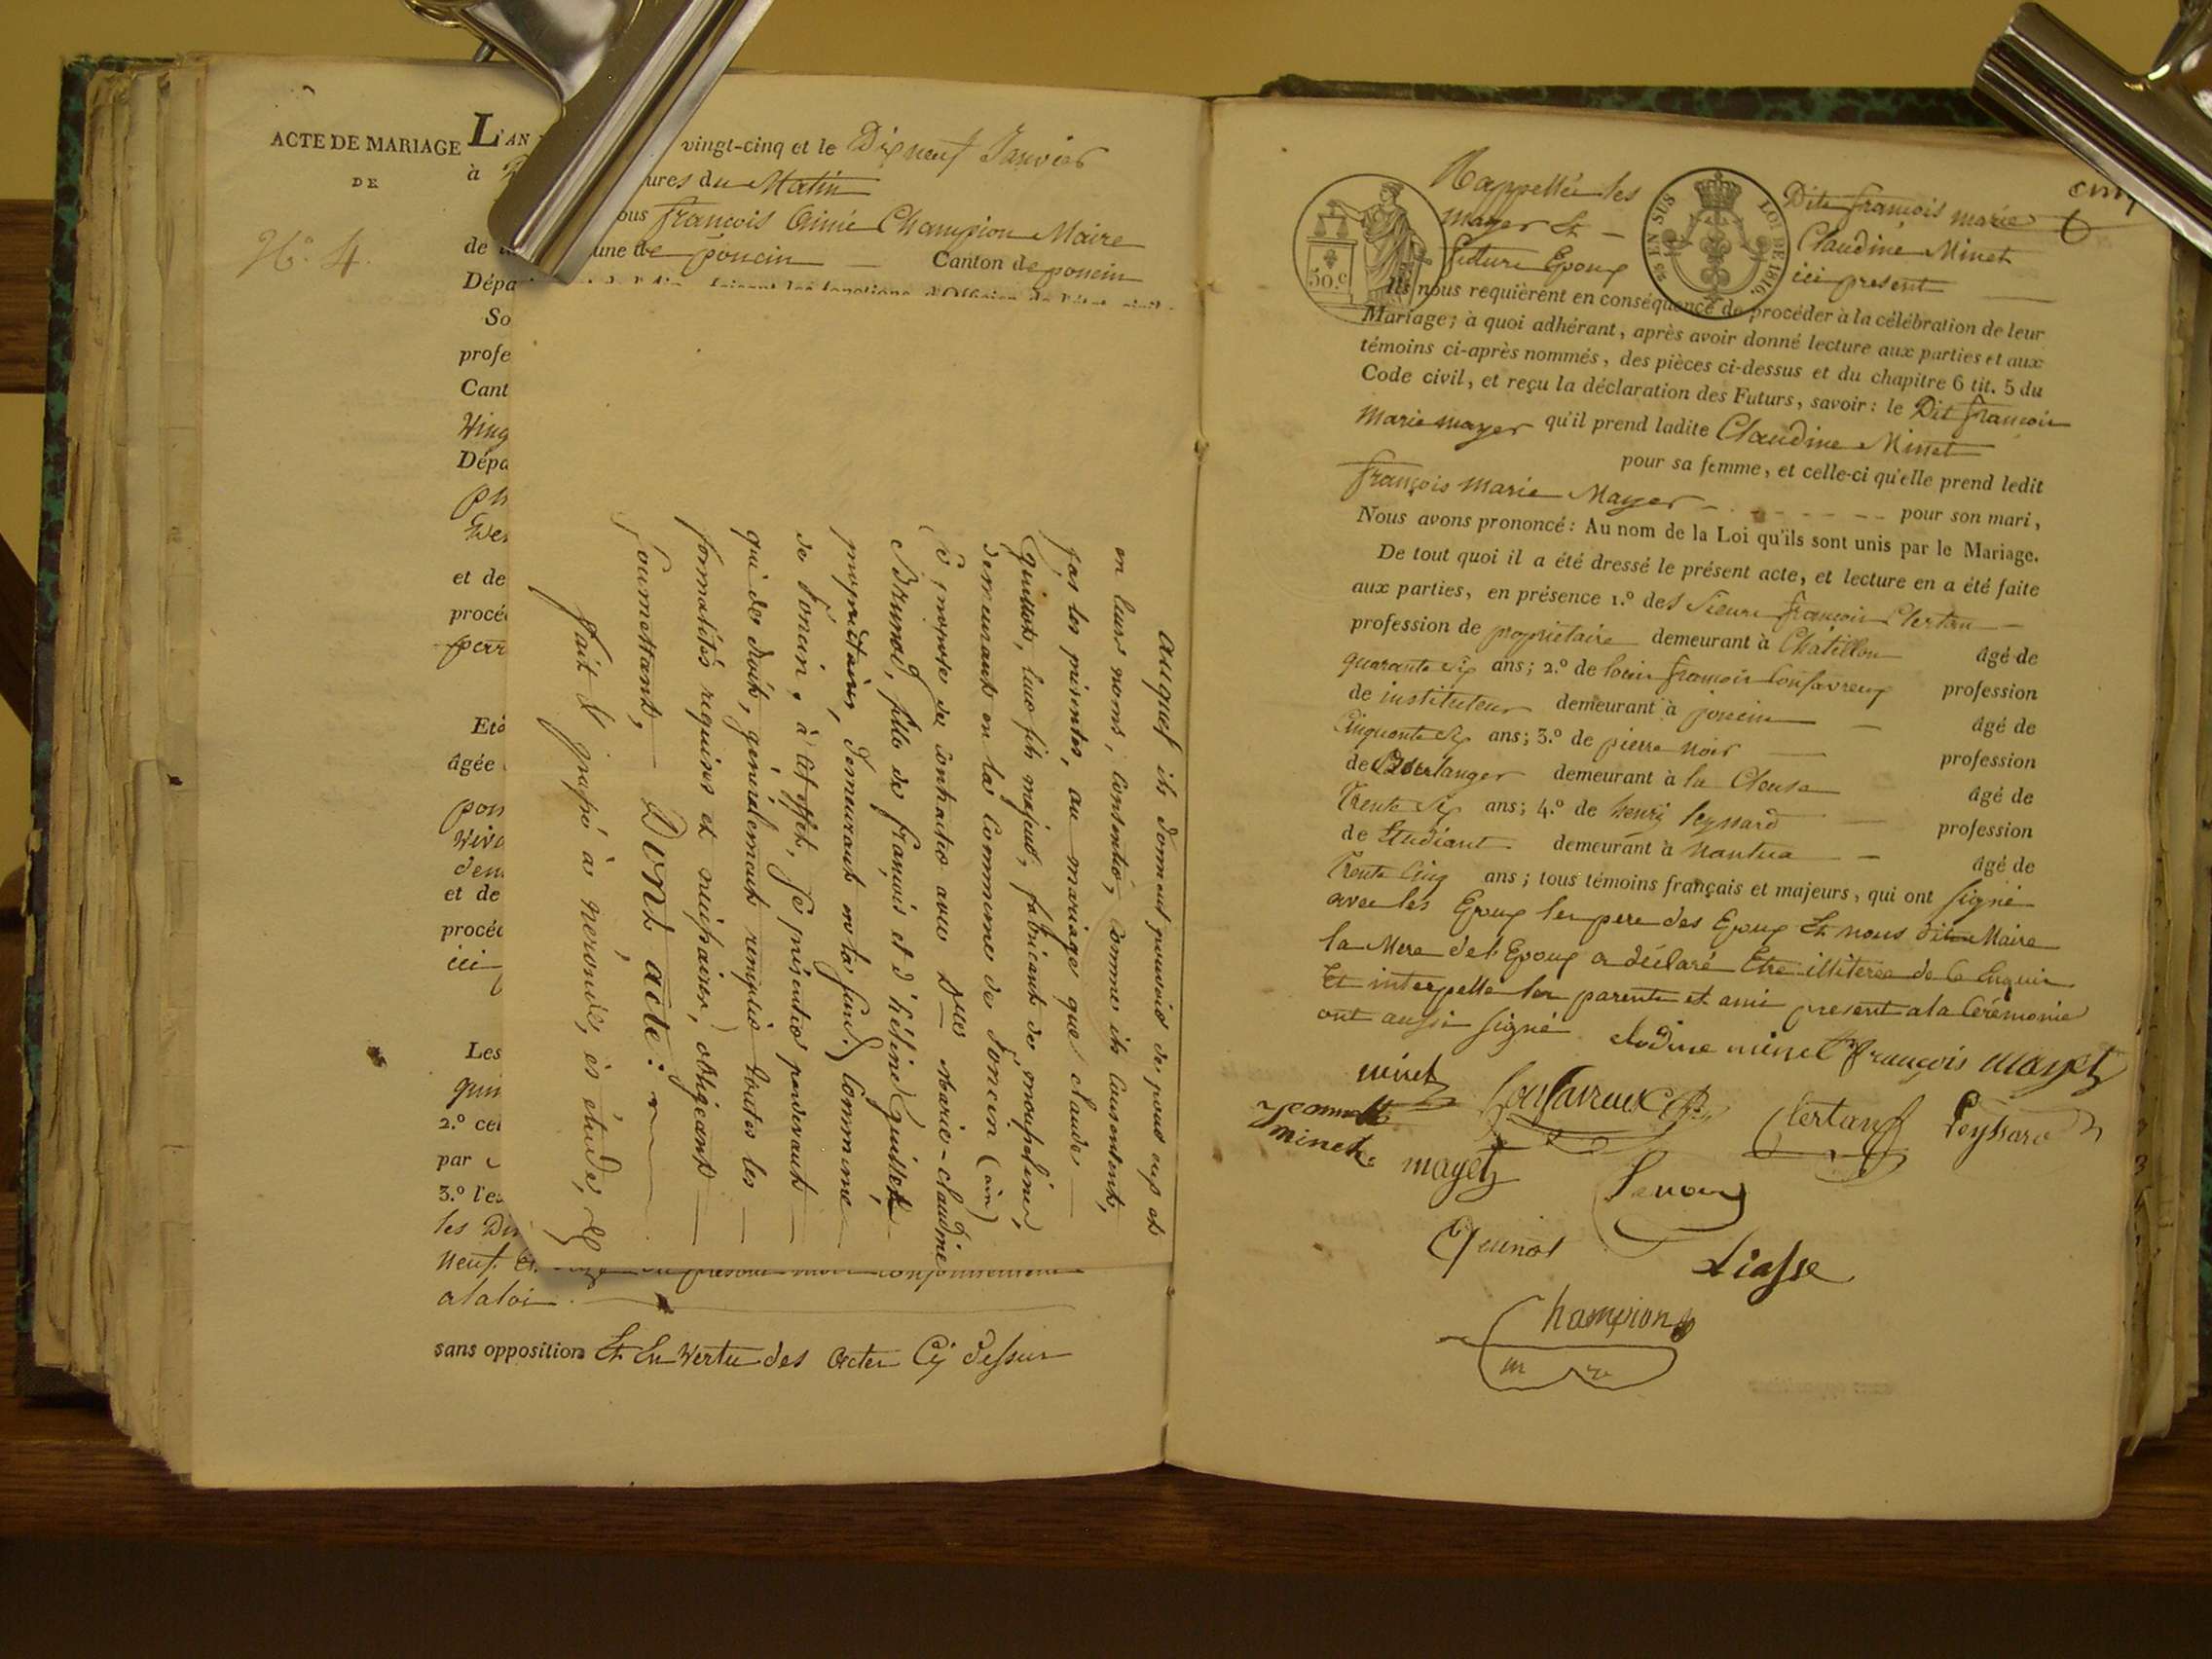 ACTE DE MARIAGE
DE
N.° 4.
L'AN
vingt-cinq et le Dix neuf Janvier
à
ures du Matin
ous françois Aimé Champion Maire
de
une de poncin Canton de poncin
Dépa
So
profe
Cant
Ving
Dépa
et de
procé
perr
Eto
âgée
pon
dem
et de
procéd
ici
Les
quin
2.° cel
par
3.° l'ex
les Di
Neuf
a la loi
sans opposition Et En Vertu des Actes Cy dessus
auquel ils donnent pouvoir de pour eux et
en leurs noms, consentir, comme ils consentent,
par les présentes, au mariage que claude
Guillot, leur fils majeur, fabricant de mousseline,
demeurant en la commune de Poncin (ain)
se propose de contracter avec Dlle Marie-claudine
Brunod, fille de françois et d'hélène Guillet
propriétaires, demeurant en la susd. commune
de Poncin, à cet effet, se présenter pardevant
qui de droit, généralement remplir toutes les
formalités requises et nécessaires, obligeant
soumettant,
Dont acte:
fait & passé à nérondes, es étude,
50.c
EN SUS
LOI DE 1816.
cinq
Rappellée les
mayer Et
future Epoux
Dite françois marie
Claudine Minet
ici present
Ils nous requièrent en conséquence de procéder à la célébration de leur
Mariage; à quoi adhérant, après avoir donné lecture aux parties et aux
témoins ci-après nommés, des pièces ci-dessus et du chapitre 6 tit. 5 du
Code civil, et reçu la déclaration des Futurs, savoir: le Dit françois
Marie mayer qu'il prend ladite Claudine Minet
pour sa femme, et celle-ci qu'elle prend ledit
françois Marie Mayer pour son mari,
Nous avons prononcé: Au nom de la Loi qu'ils sont unis par le Mariage.
De tout quoi il a été dressé le présent acte, et lecture en a été faite
aux parties, en présence 1.° des Sieurs françois Clertan
profession de propriétaire demeurant à Châtillon âgé de
quarante Six ans; 2.° de louis françois Confavreux profession
de instituteur demeurant à poncin âgé de
Cinquante Six ans; 3.° de pierre Noir profession
de Boulanger demeurant à la Cleuse âgé de
Trente Six ans; 4.° de henry leyssard profession
de Etudiant demeurant à Nantua âgé de
Trente Cinq ans; tous témoins français et majeurs, qui ont signé
avec les Epoux les pere des Epoux Et nous dit Maire
la Mere de l'Epoux a déclaré Etre illiterée de Ce Enquis
Et interpelle les parents et amis present a la Cérémonie
ont aussi signé
clodine minet françois Mayet
minet Confavreux Clertan Leyssard
jeannette
minet
mayet Lenoir
Quinot
Liasse
Champion